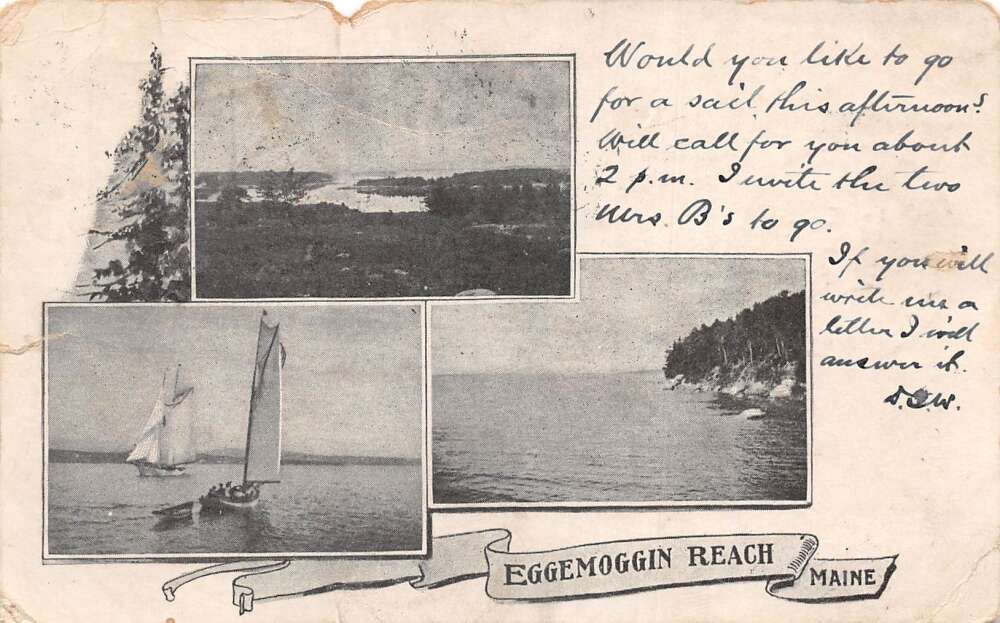 Would you like to go
for a sail this afternoon?
Will call for you about
2 p.m. I invite the two
Mrs. B's to go.
If you will
write me a
letter I will
answer it.
EGGEMOGGIN REACH
MAINE